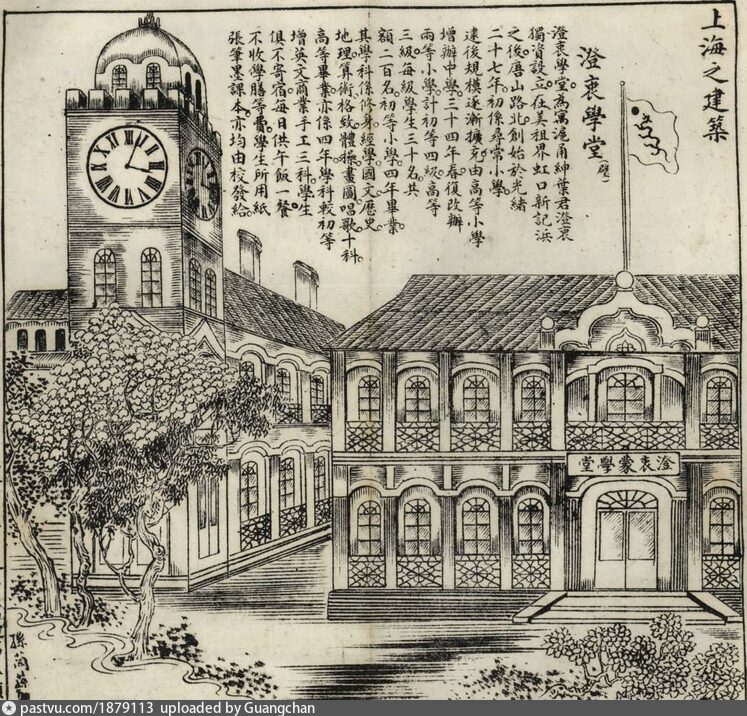 上海之建築
澄衷學堂
澄衷學堂。為寓滬甬紳葉君澄衷
獨資設立。在美租界虹口新記浜
之後唐山路北。創始於光緒
二十七年。初係尋常小學。
逮後規模逐漸擴充。由高等小學
增辦中學。三十四年春。復改辦
兩等小學。計初等四級。高等
三級。每級學生三十名。共
額二百名。初等小學。四年畢業。
其學科係修身。經學。國文。歷史。
地理。算術。格致。體操。畫圖。唱歌。十科。
高等畢業。亦係四年。學科較初等
增英文。商業。手工。三科。學生
俱不寄宿。每日供午飯一餐。
不收學膳等費。學生所用紙
張筆墨課本。亦均由校發給。
澄衷蒙學堂
pastvu.com/1879113 uploaded by Guangchan